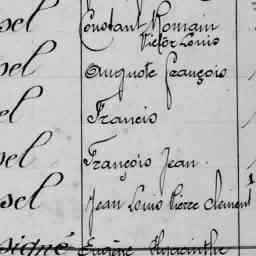 sel Constant Romain
Victor Louis
sel Auguste François
el Francis
sel François Jean.
sel Jean Louis Pierre Clément
signé Eugène Hyacinthe